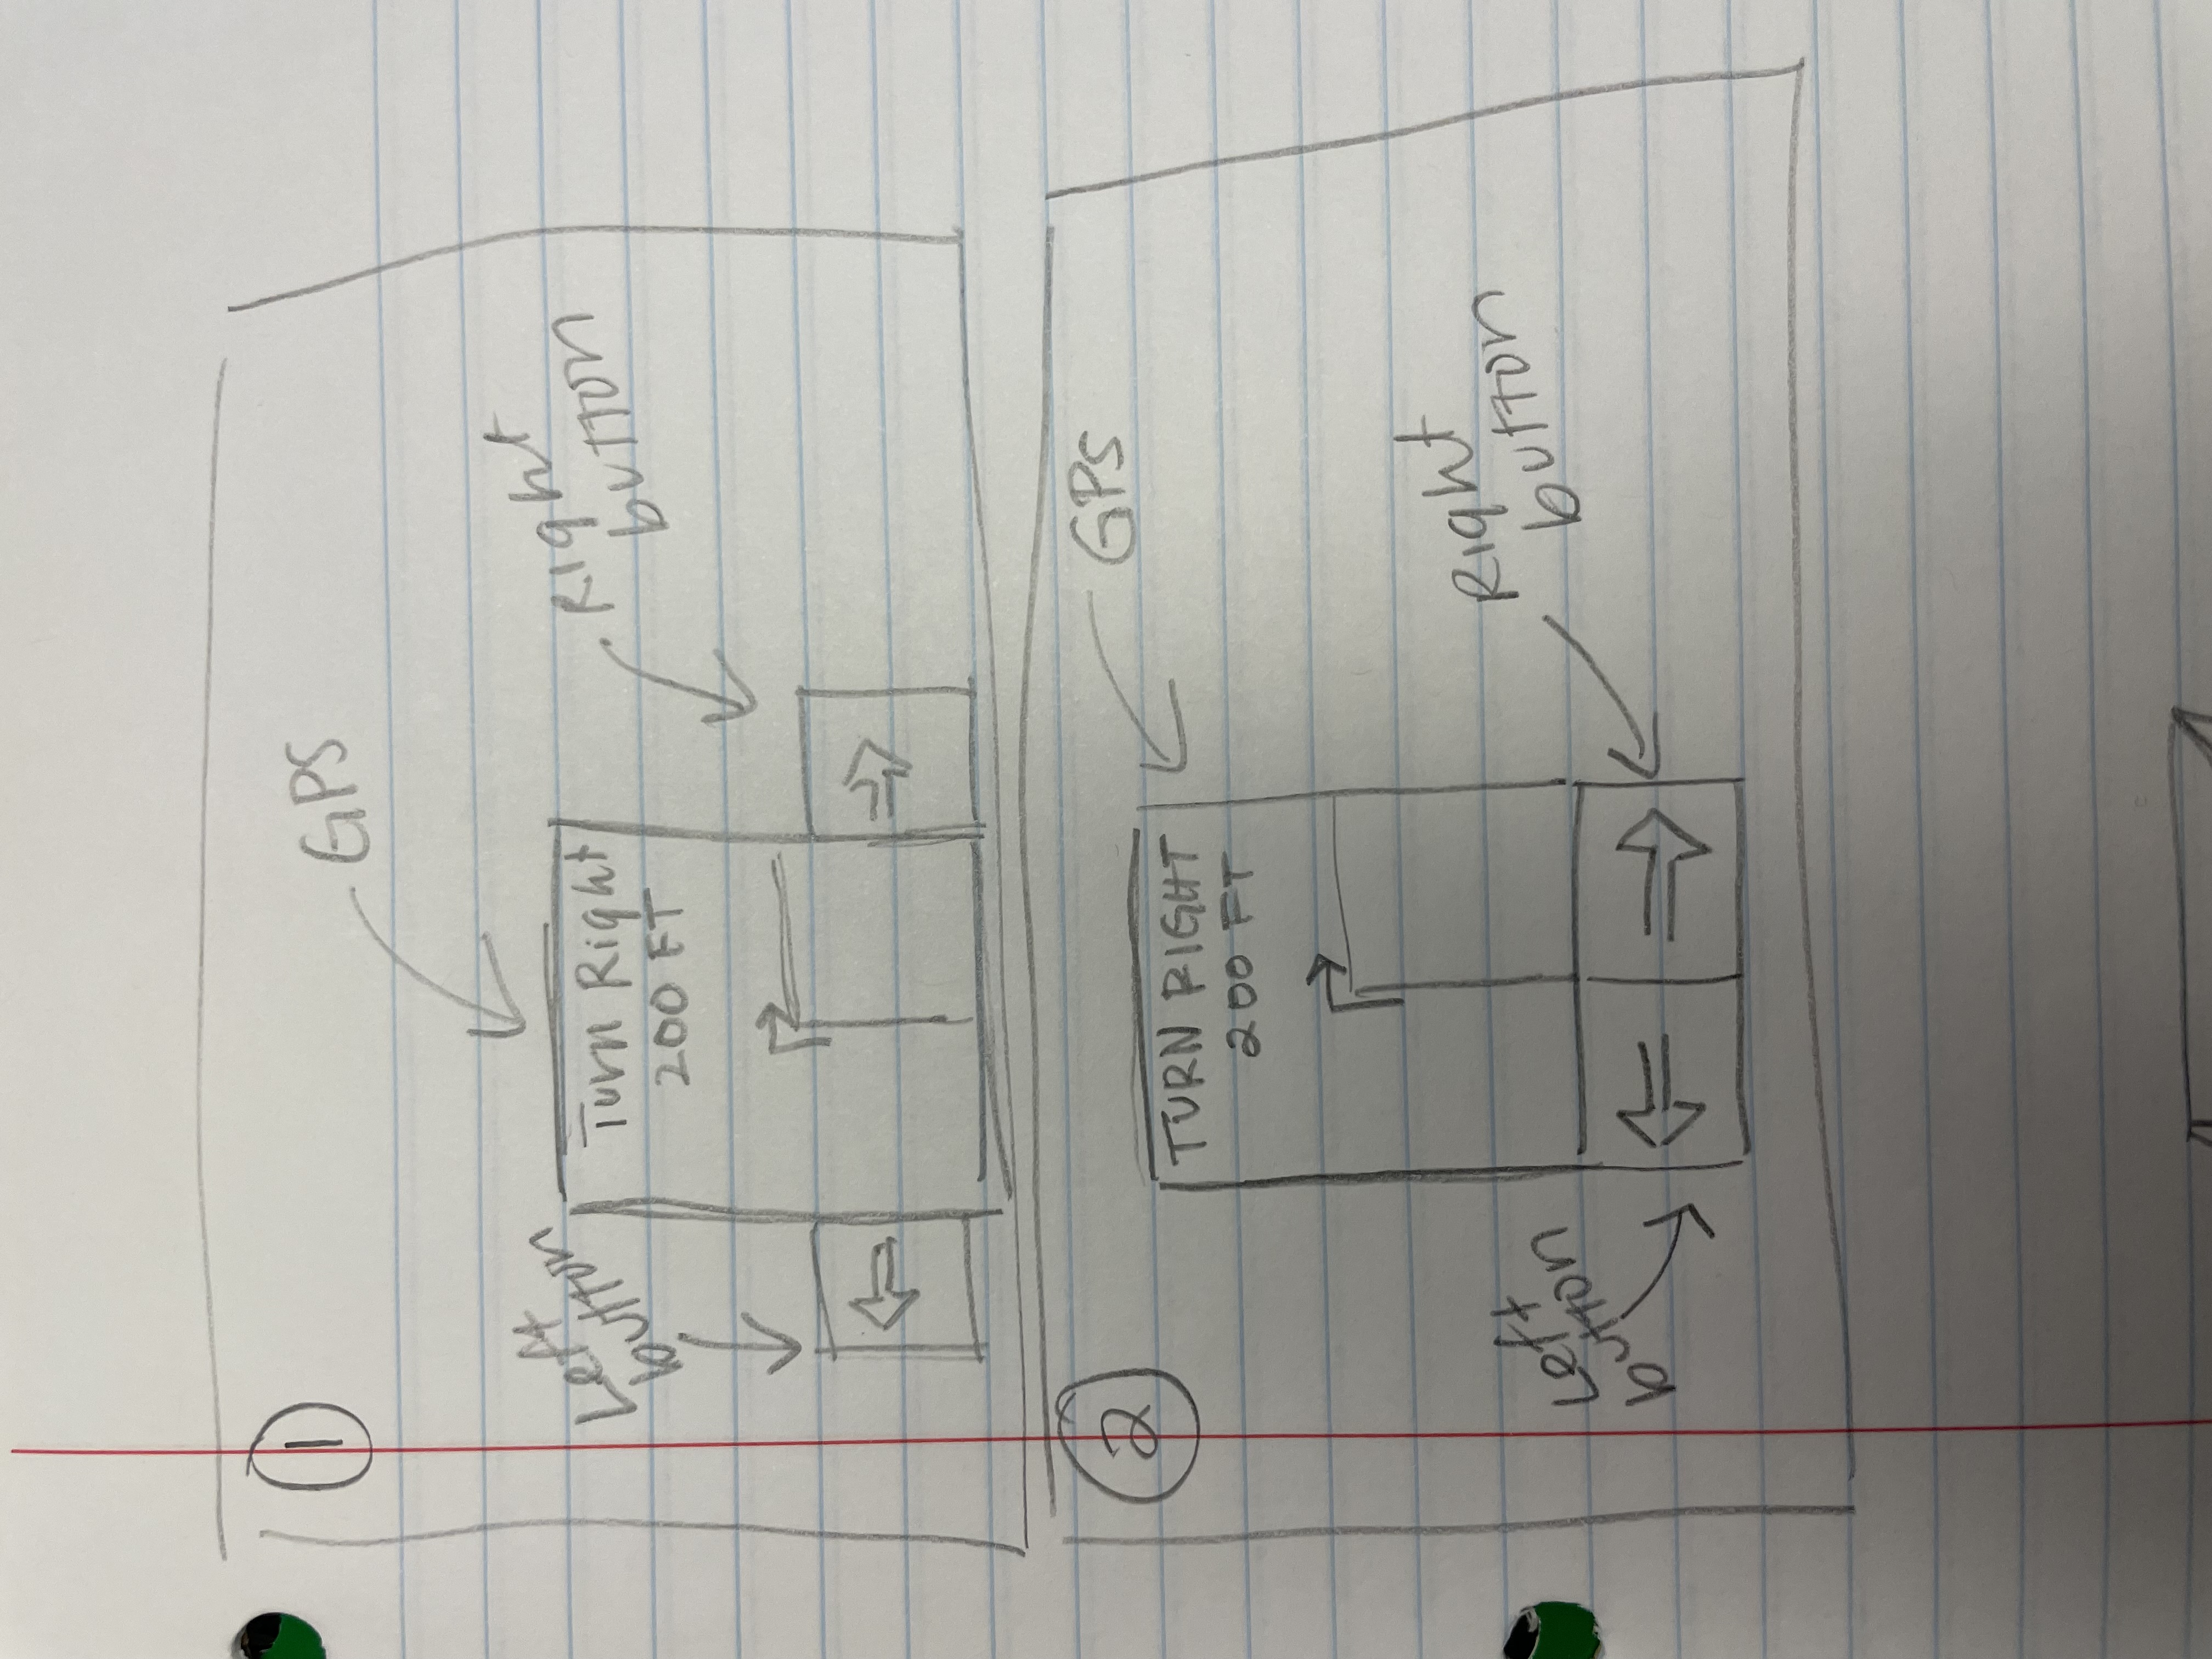 1
GPS
Left
button
Turn Right
200 FT
Right
button
2
GPS
TURN RIGHT
200 FT
Left
button
Right
button